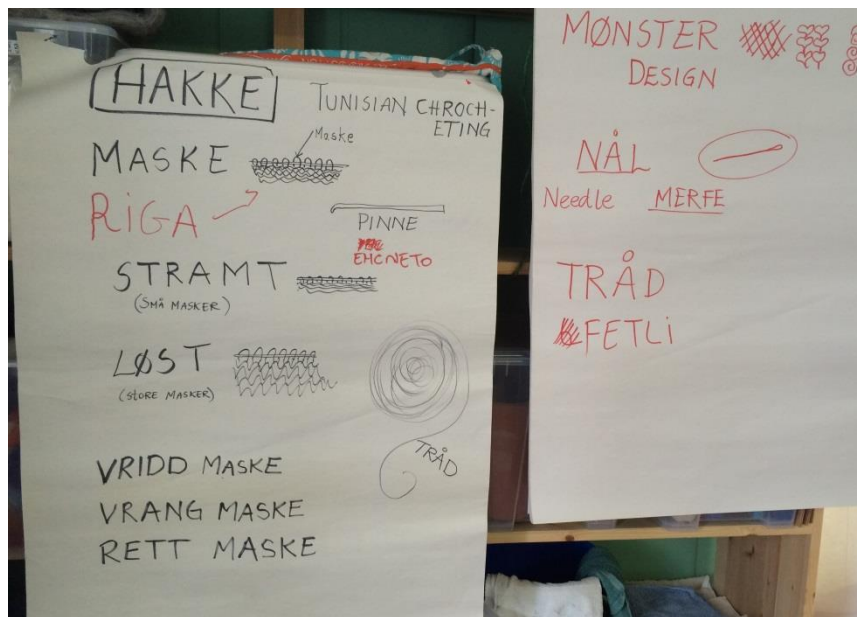 HAKKE
TUNISIAN CHROCH-
ETING
Maske
MASKE
RIGA
PINNE
EHCNETO
STRAMT
(SMÅ MASKER)
LØST
(STORE MASKER)
TRÅD
VRIDD MASKE
VRANG MASKE
RETT MASKE
MØNSTER
DESIGN
NÅL
Needle MERFE
TRÅD
FETLI